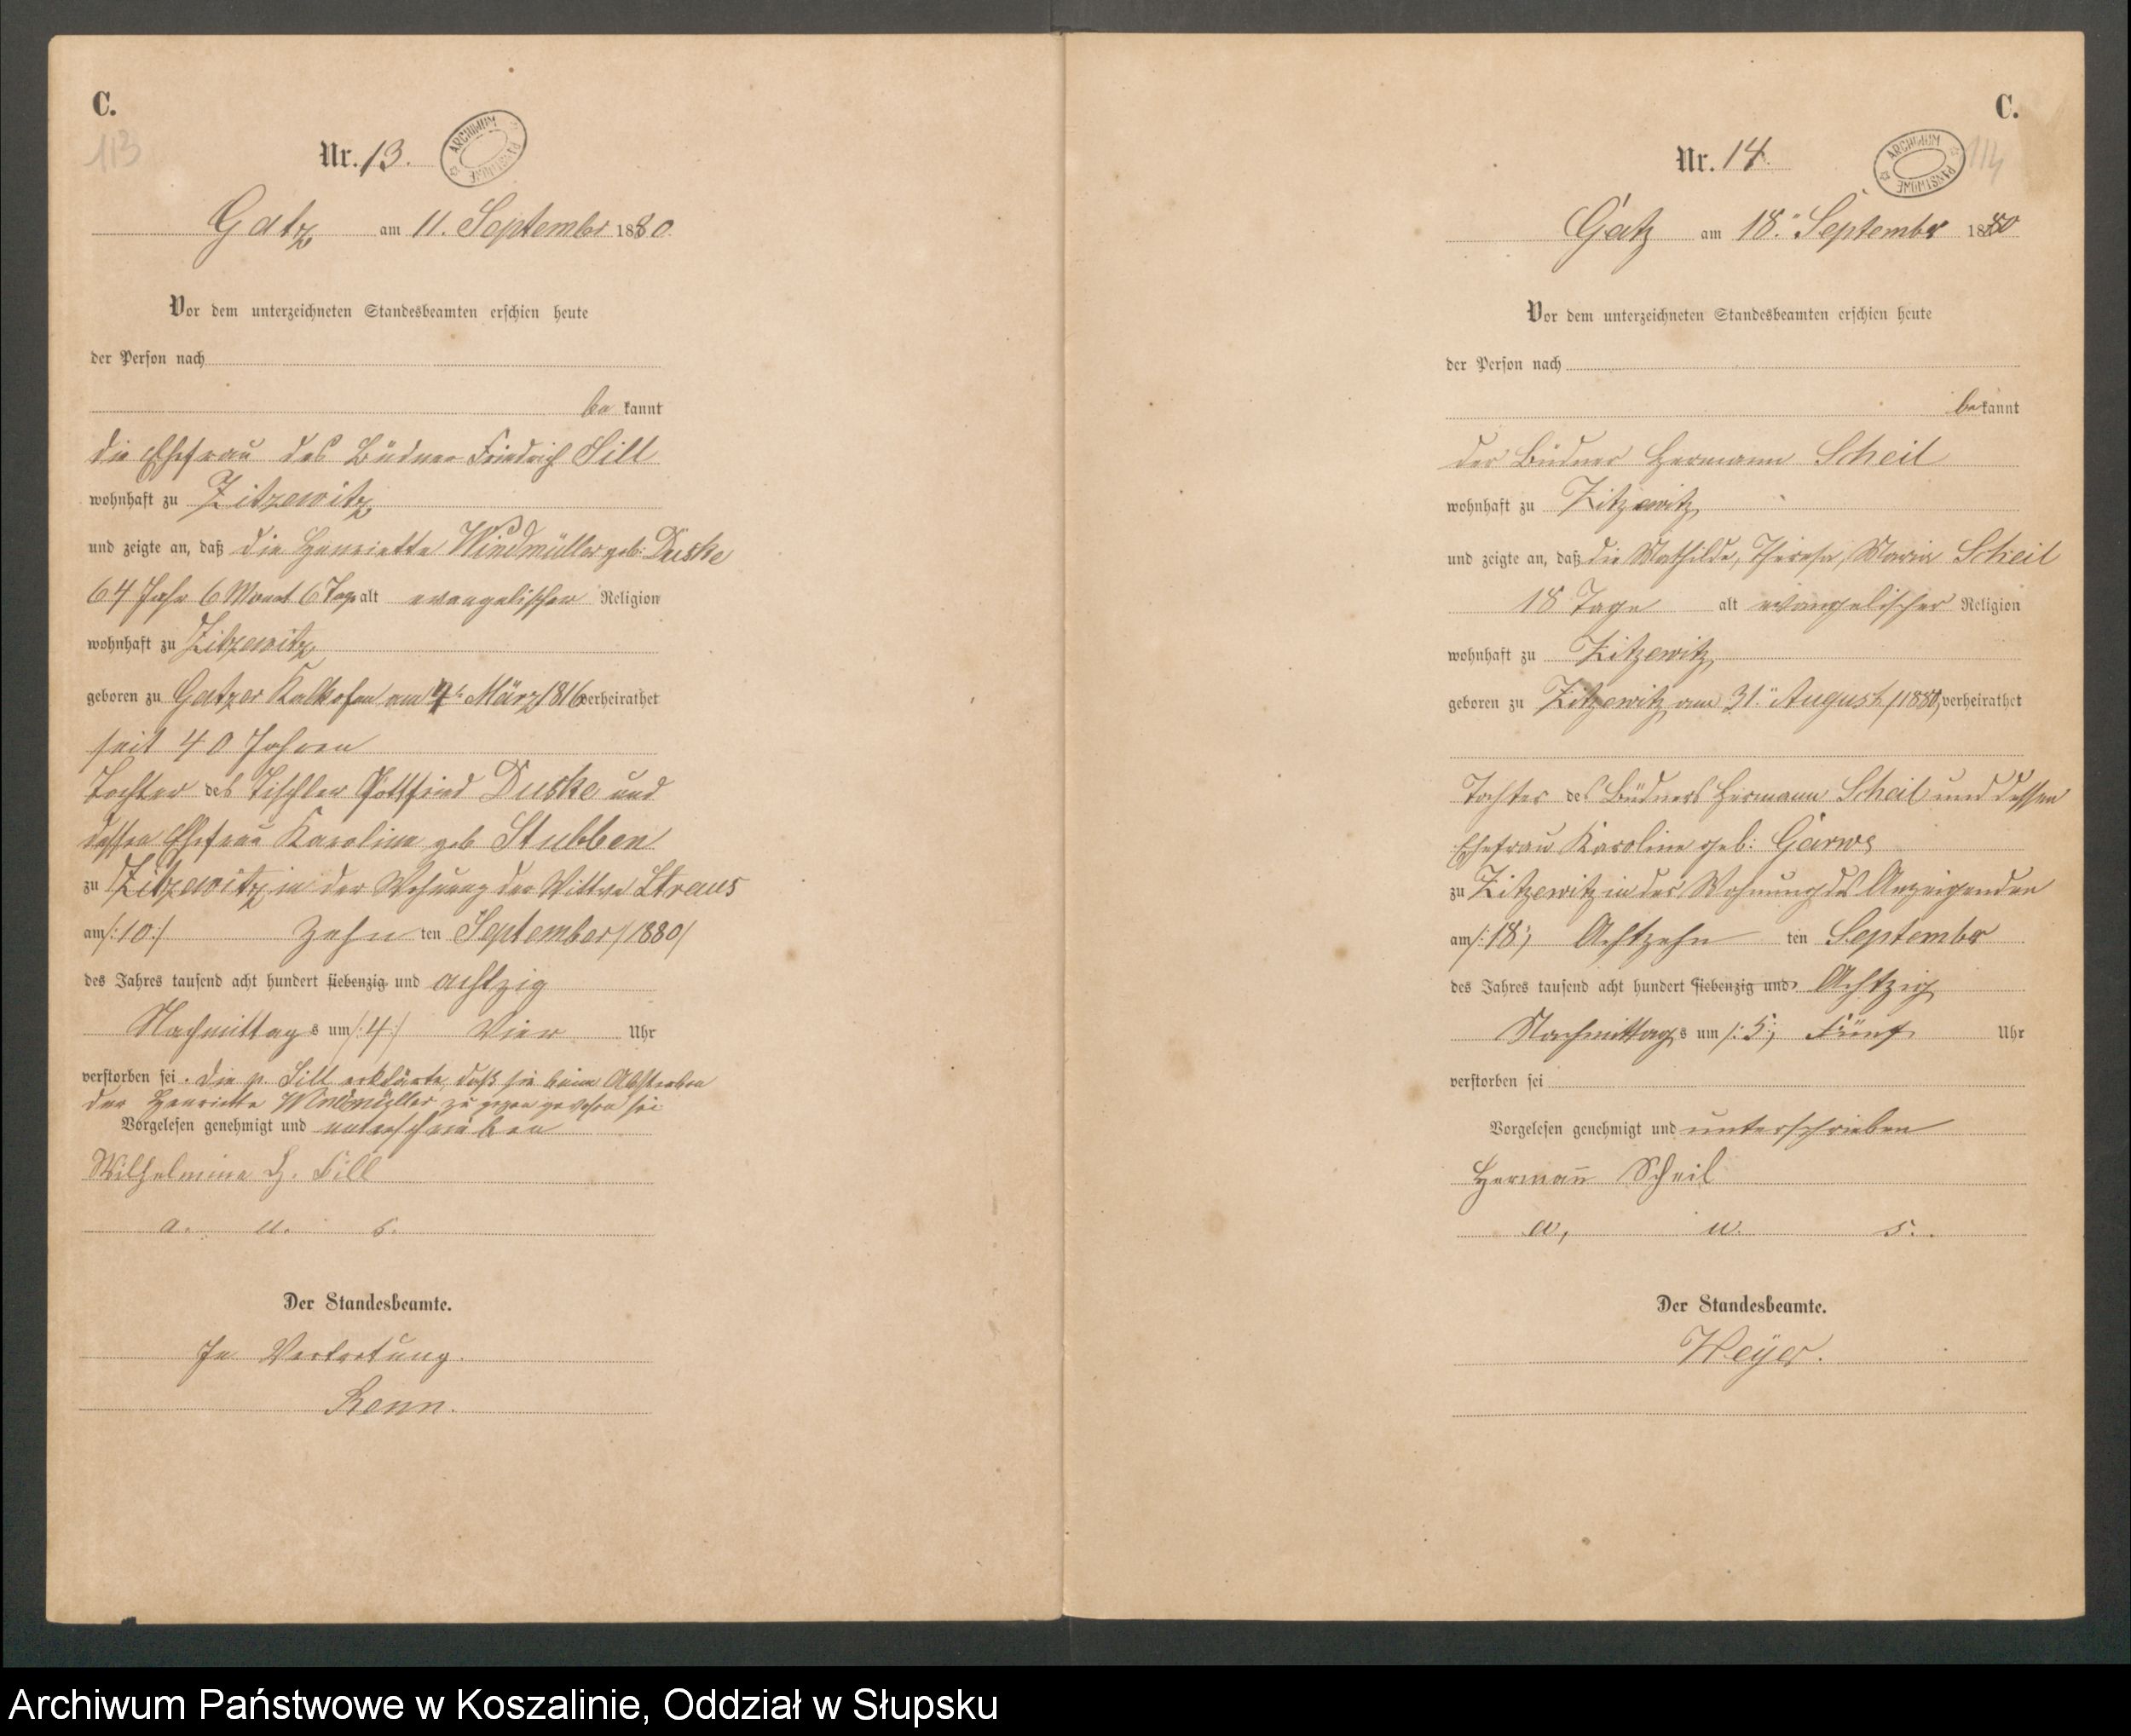 C.
113
Nr. 13.
ARCHIWUM PAŃSTWOWE
Gatz am 11. September 1880.
Vor dem unterzeichneten Standesbeamten erschien heute
der Person nach
be kannt
die Ehefrau des Büdner Friedrich Sill
wohnhaft zu Zitzewitz
und zeigte an, daß die Henriette Windmüller geb: Duske
64 Jahr 6 Monat 6 Tage alt evangelischer Religion
wohnhaft zu Zitzewitz
geboren zu Gatzer Kalkofen am 4t März 1816 verheirathet
seit 40 Jahren
Tochter des Tischler Gottfried Duske und
dessen Ehefrau Karoline geb Stubben
zu Zitzewitz in der Wohnung der Wittwe Straus
am /:10:/ Zehn ten September /1880/
des Jahres tausend acht hundert siebenzig und achtzig
Nachmittags um /:4:/ Vier Uhr
verstorben sei. Die p. Sill erklärte, daß sie beim Absterben
der Henriette Windmüller zu gegen gewesen sei
Vorgelesen genehmigt und unterschrieben
Wilhelmine H. Sill
a. u. s.
Der Standesbeamte.
In Vertretung.
Renn.
C.
114
Nr. 14.
ARCHIWUM PAŃSTWOWE
Gatz am 18. September 1880
Vor dem unterzeichneten Standesbeamten erschien heute
der Person nach
be kannt
der Büdner Hermann Scheil
wohnhaft zu Zitzewitz
und zeigte an, daß die Mathilde, Therese, Marie Scheil
18 Tage alt evangelischer Religion
wohnhaft zu Zitzewitz
geboren zu Zitzewitz am 31. August /1880/ verheirathet
Tochter des Büdners Hermann Scheil und dessen
Ehefrau Karoline geb: Garws
zu Zitzewitz in der Wohnung des Anzeigenden
am /:18:/ Achtzehn ten September
des Jahres tausend acht hundert siebenzig und Achtzig
Nachmittags um /:5:/ Fünf Uhr
verstorben sei
Vorgelesen genehmigt und unterschrieben
Hermann Scheil
a, u. s.
Der Standesbeamte.
Weyer.
Archiwum Państwowe w Koszalinie, Oddział w Słupsku